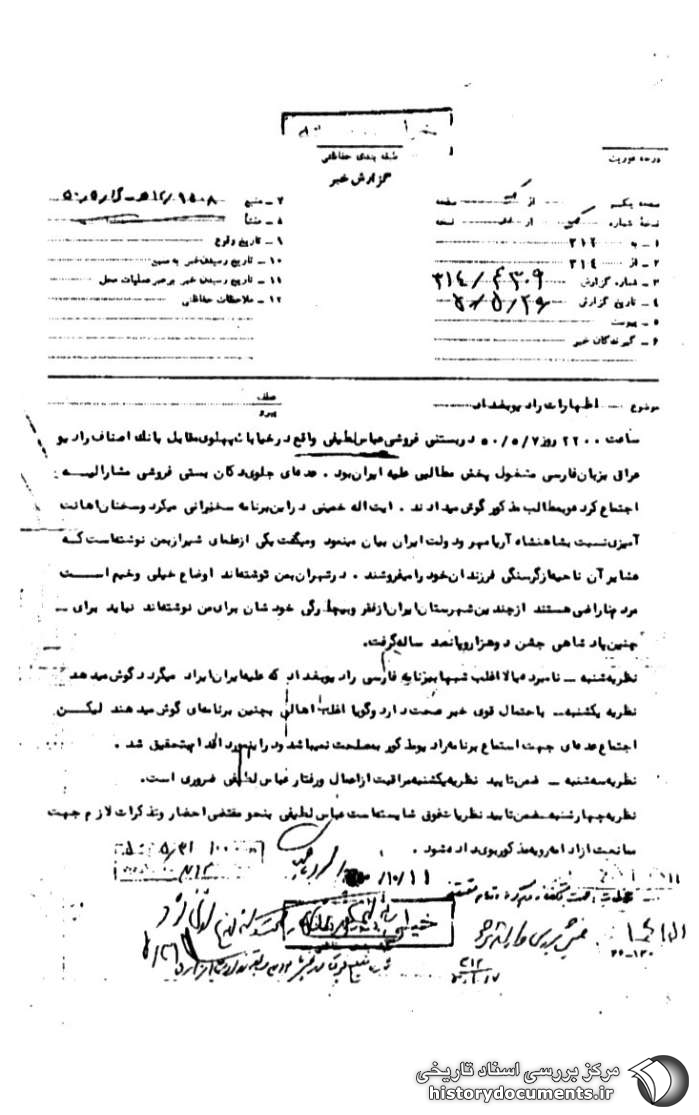 طبقه بندی حفاظتی
گزارش خبر
درجه فوریت
صفحه یکم از یک صفحه
نسخه شماره یک از نسخه
۱ - به ۳۱۲
۲ - از ۳۱۴
۳ - شماره گزارش ۳۱۴/۴۳۰۹
۴ - تاریخ گزارش
۵ - پیوست
۶ - گیرندگان خبر
۷ - منبع
۸ - منشأ
۹ - تاریخ وقوع
۱۰ - تاریخ رسیدن خبر به منبع
۱۱ - تاریخ رسیدن خبر برهبر عملیات محل
۱۲ - ملاحظات حفاظتی
موضوع اظهارات رادیو بغداد
عطف
پیرو
ساعت ۲۲۰۰ روز ۵۰/۵/۷ در بستنی فروشی عباس لطیفی واقع در خیابان پهلوی مقابل بانک اصناف رادیو
عراق بزبان فارسی مشغول پخش مطالبی علیه ایران بود . عده ای جلوی دکان بستنی فروشی مشارالیه
اجتماع کرده و بمطالب مذکور گوش میدادند . ایت اله خمینی در این برنامه سخنرانی میکرد و سخنان اهانت
آمیزی نسبت بشاهنشاه آریامهر و دولت ایران بیان مینمود و میگفت یکی از علمای شیراز بمن نوشته است که
عشایر آن ناحیه از گرسنگی فرزندان خود را میفروشند . در تهران بمن نوشته اند اوضاع خیلی وخیم است
مردم ناراضی هستند از چندین شهرستان ایران از فقر و بیچارگی خودشان برای من نوشته اند نباید برای
چنین پادشاهی جشن دو هزار و پانصد ساله گرفت.
نظریه شنبه - نامبرده بالا اغلب شبها ببرنامه فارسی رادیو بغداد که علیه ایران ایراد میگردد گوش میدهد
نظریه یکشنبه - باحتمال قوی خبر صحت دارد و گویا اغلب اهالی بچنین برنامه ای گوش میدهند لیکن
اجتماع عده ای جهت استماع برنامه رادیو مذکور به مصلحت نمیباشد و در اینمورد اقدام به تحقیق شد .
نظریه سه شنبه - ضمن تایید نظریه یکشنبه مراقبت از اعمال و رفتار عباس لطیفی ضروری است.
نظریه چهارشنبه - ضمن تایید نظریات فوق شایسته است عباس لطیفی بنحو مقتضی احضار و تذکرات لازم جهت
ممانعت از ادامه رویه مذکور بوی داده شود .
۱۰/۱۱
خیلی محرمانه
۳۱۲
مرکز بررسی اسناد تاریخی
historydocuments.ir